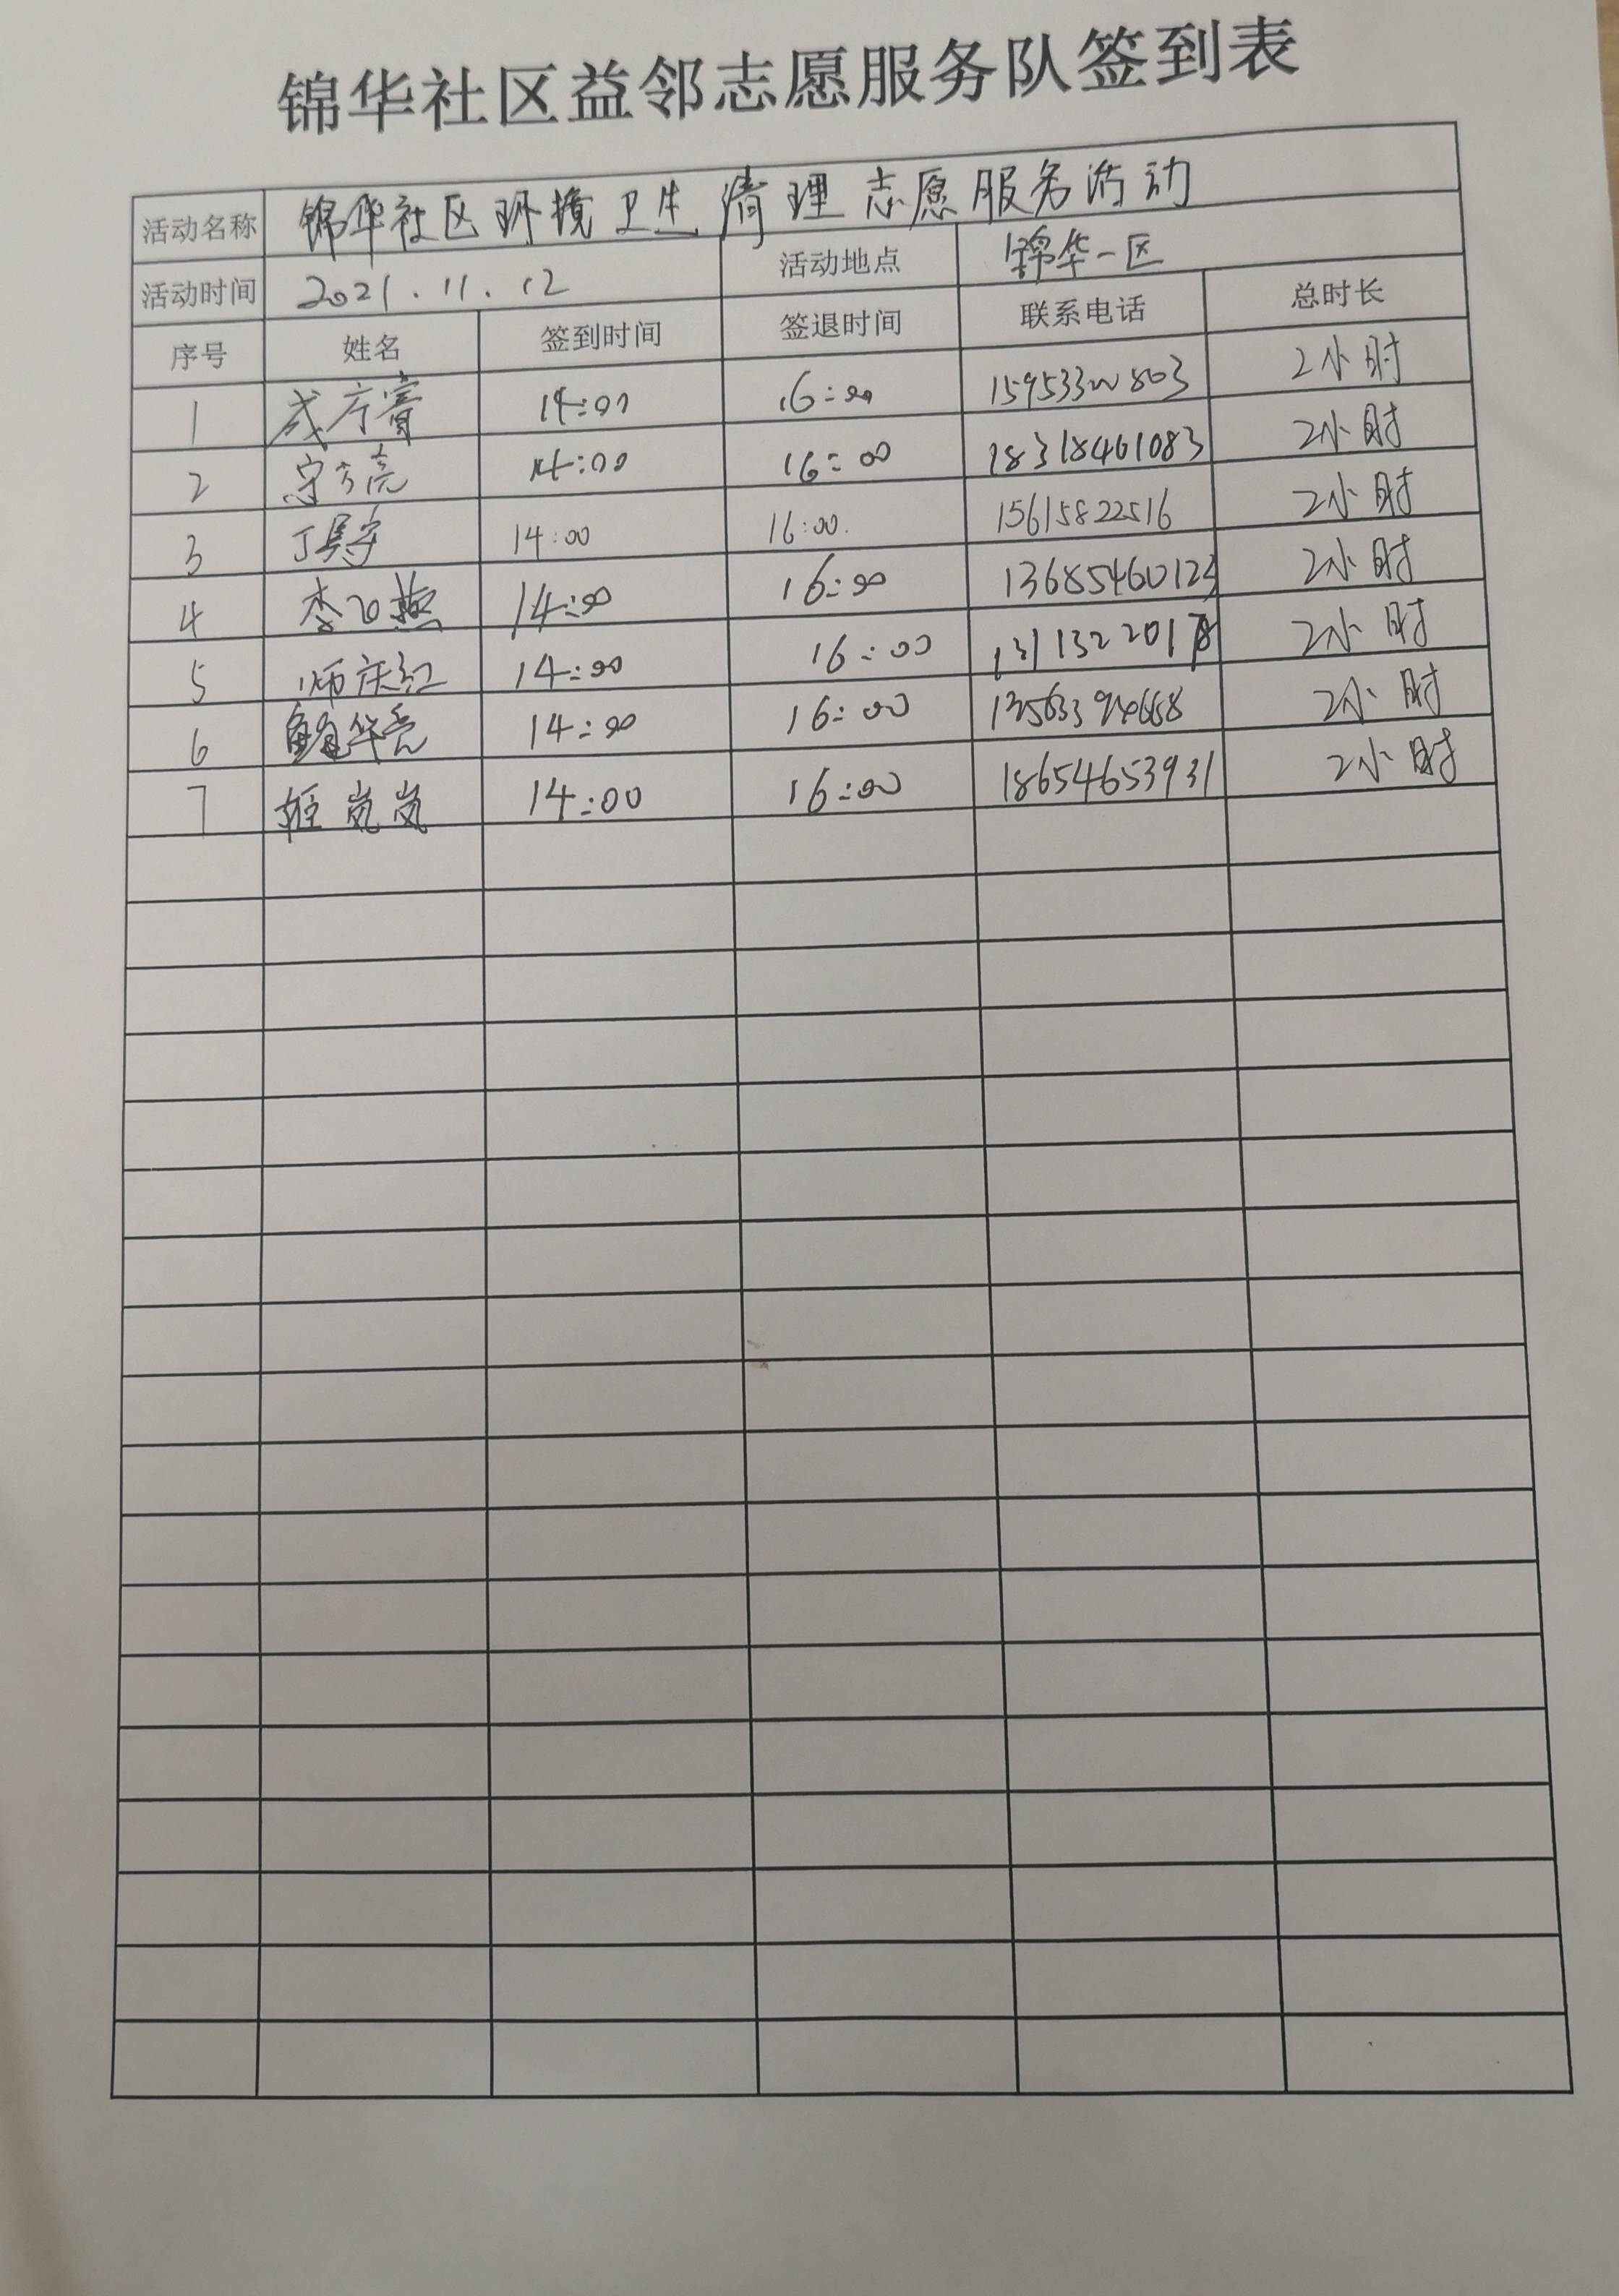 锦华社区益邻志愿服务队签到表
活动名称 锦华社区环境卫生清理志愿服务活动
活动时间 2021.11.12 活动地点 锦华一区
序号 姓名 签到时间 签退时间 联系电话 总时长
1 14:00 16:00 2小时
2 14:00 16:00 18318461083 2小时
3 14:00 16:00. 15615822516 2小时
4 李 燕 14:00 16:00 13685460123 2小时
5 师庆红 14:00 16:00 2小时
6 华亮 14:00 16:00 2小时
7 姬岚岚 14:00 16:00 18654653931 2小时